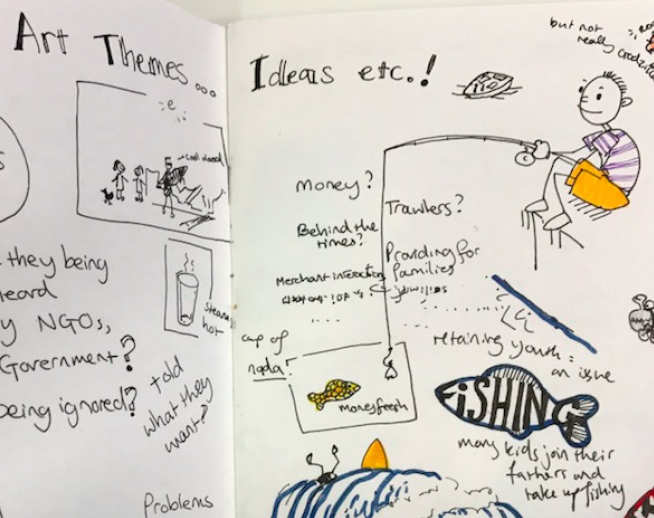 Art Themes...
they being
heard
NGOs,
Government?
being ignored?
told
what they
want?
Problems
steaming
hot
Ideas etc.!
but not
really
Money?
Trawlers?
Behind the
times?
Providing for
families
Merchant interaction
cup of
moneyfeesh
retaining youth =
an issue
FISHING
many kids join their
fathers and
take up fishing